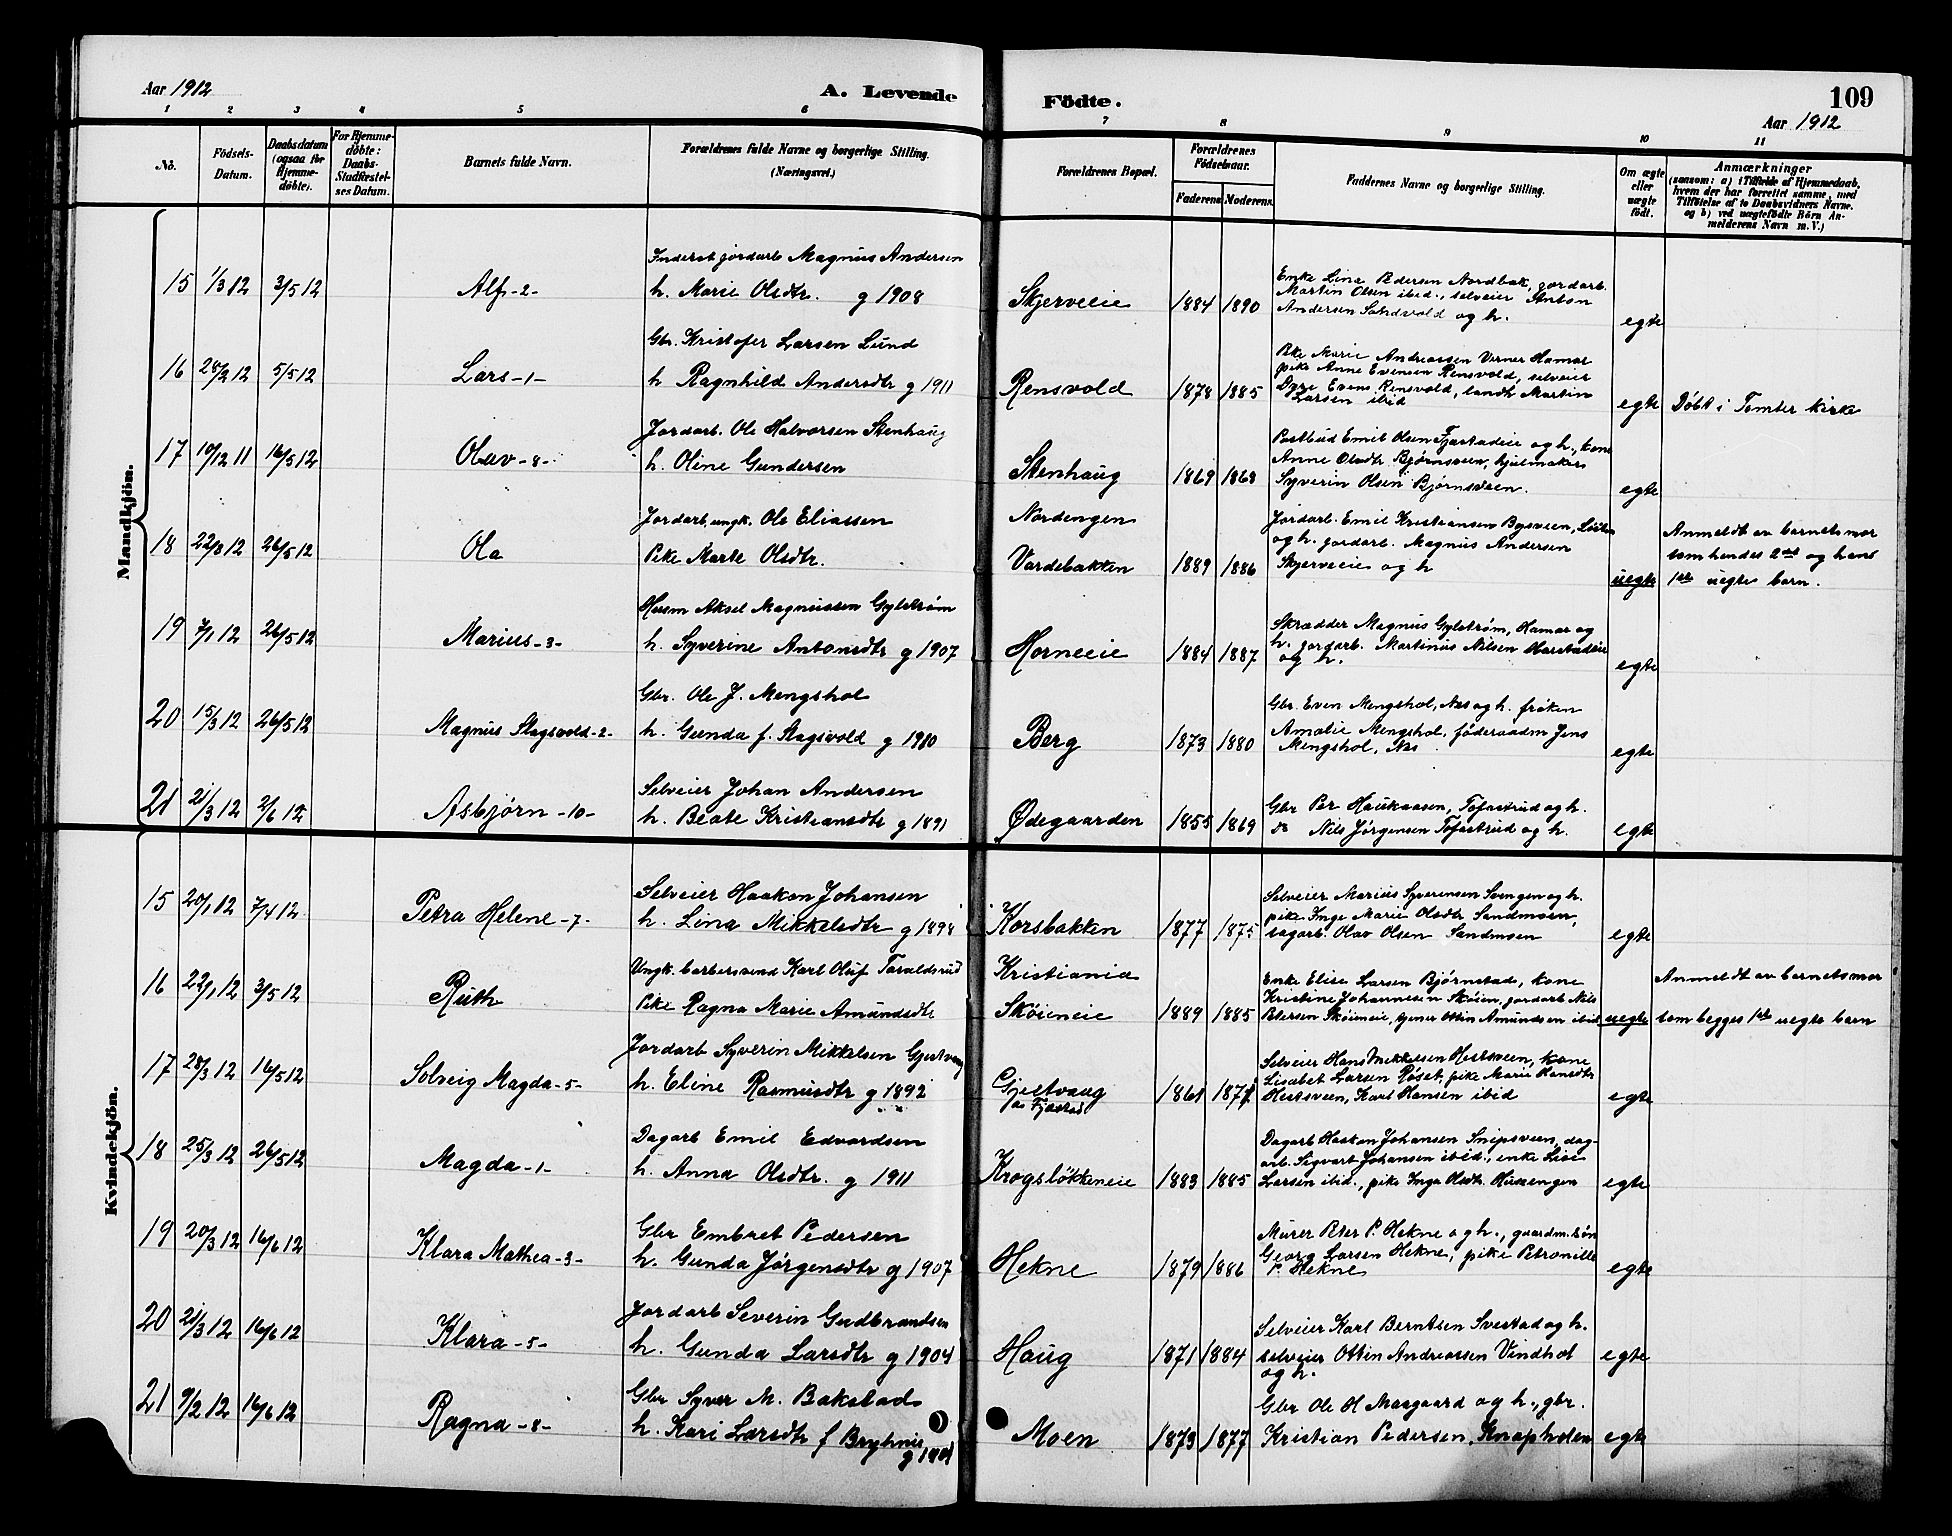 Aar 1912
A. Levende Födte.
109
Aar 1912
1 2 3 4 5 6 7 8 9 10 11
No.
Födsels-Datum.
Daabsdatum (ogsaa for Hjemmedöbte).
For Hjemmedöbte: Daabs-Stadfæstelses Datum.
Barnets fulde Navn.
Forældrenes fulde Navne og borgerlige Stilling. (Næringsvei.)
Forældrenes Bopæl.
Forældrenes Födselsaar.
Faderens Moderens
Faddernes Navne og borgerlige Stilling.
Om ægte eller uægte födt.
Anmærkninger (saasom: a) i Tilfælde af Hjemmedaab, hvem der har forrettet samme, med Tilföielse af to Daabsvidners Navne. og b) ved uægtefödte Börn Anmelderens Navn m. V.)
Mandkjön.
15 1/3 12 3/5 12 Alf -2-
Inderst jordarb Magnus Andersen
h. Marie Olsdtr. g 1908
Skjerveeie 1884 1890
Enke Lina Pedersen Nordbak, jordarb.
Martin Olsen ibid., selveier Anton
Andersen Sandvold og h.
egte
16 28/2 12 5/5 12 Lars -1-
Gbr. Kristofer Larsen Lund
h Ragnhild Andersdtr g 1911
Rensvold 1878 1885
Pike Marie Andreassen Verner Hamar
pike Anne Evensen Rensvold, selveier
Dyre Evens Rensvold, landh Martin
Larsen ibid
egte Döbt i Tomter kirke
17 10/12 11 16/5 12 Olav -8-
Jordarb. Ole Halvorsen Stenhaug
h. Oline Gundersen
Stenhaug 1869 1868
Postbud Emil Olsen Fjæstadeie og h., kone
Anne Olsdtr Bjørnsveen, hjulmaker
Syverin Olsen Bjørnsveen.
egte
18 22/3 12 26/5 12 Ola
Jordarb. ungk. Ole Eliassen
Pike Marte Olsdtr.
Nordengen
Vardebakken 1889 1886
Jordarb. Emil Kristiansen Bysveen, Løiten
og h. jordarb. Magnus Andersen
Skjerveeie og h
uegte
Anmeldt av barnets mor
som hendes 2det og hans
1ste uegte barn.
19 7/1 12 26/5 12 Marius -3-
Husm Aksel Magnussen Gylstrøm
h. Syverine Antonsdtr g 1907
Horneeie 1884 1887
Skrædder Magnus Gylstrøm, Hamar og
h. jordarb. Martinus Nilsen Harstadeie
og h.
egte
20 15/3 12 26/5 12 Magnus Stagsvold -2-
Gbr. Ole J. Mengshol
h. Gunda f. Stagsvold g 1910
Berg 1873 1880
Gbr. Even Mengshol, Nes og h. frøken
Amalie Mengshol, föderaadm Jens
Mengshol, Nes
egte
21 21/3 12 2/6 12 Asbjørn -10-
Selveier Johan Andersen
h. Beate Kristiansdtr g 1891
Ødegaarden 1855 1869
Gbr Per Haukaasen, Tofastrud og h.
do Nils Jørgensen Tofastrud og h.
egte
Kvindekjön.
15 20/1 12 7/4 12 Petra Helene -7-
Selveier Haakon Johansen
h. Lina Mikkelsdtr g 1898
Korsbakken 1877 1875
Selveier Marius Syversen Svengen og h.
pike Inge Marie Olsdtr Sandmoen,
sagarb. Olav Olsen Sandmoen
egte
16 22/1 12 3/5 12 Ruth
Ungk. barbersvend Karl Oluf Toraldsrud
Pike Ragna Marie Amundsdtr
Kristiania
Skøieneie 1889 1885
Enke Elise Larsen Bjørnstad, kone
Kristine Johannesen Skøien, jordarb Nils
Petersen Skøieneie, tjener Ottin Amundsen ibid
uegte
Anmeldt av barnets mor
som begges 1ste uegte barn
17 28/3 12 16/5 12 Solveig Magda -5-
Jordarb Syverin Mikkelsen Gjestvang
h. Eline Rasmusdtr g 1892
Gjestvang
av Fjæstad 1861 1871
Selveier Hans Mikkelsen Hestsveen, kone
Lisabet Larsen Røset, pike Marie Hansdtr
Hestsveen, Karl Hansen ibid
egte
18 25/3 12 26/5 12 Magda -1-
Dagarb Emil Edvardsen
h. Anna Olsdtr. g 1911
Krogsløkkeneie 1883 1885
Dagarb Haakon Johansen Snipsveen, dag-
arb. Sigvart Johansen ibid., enke Lise
Larsen ibid., pike Inga Olsdtr. Husengen
egte
19 20/3 12 16/6 12 Klara Mathea -3-
Gbr Embret Pedersen
h. Gunda Jørgensdtr g 1907
Hekne 1879 1886
Murer Peter P. Hekne og h., gaardm.søn
Georg Larsen Hekne, pike Petronille
P. Hekne
egte
20 21/3 12 16/6 12 Klara -5-
Jordarb Severin Gudbrandsen
h. Gunda Larsdtr g 1904
Haug 1871 1884
Selveier Karl Berntsen Svestad og h.
selveier Ottin Andreassen Vindhol
og h.
egte
21 9/2 12 16/6 12 Ragna -8-
Gbr Syver M. Bakstad
h. Kari Larsdtr f Bryhni
g 1901
Moen 1873 1877
Gbr Ole H Aasgaard og h., gbr.
Kristian Pedersen, Knapholen
egte